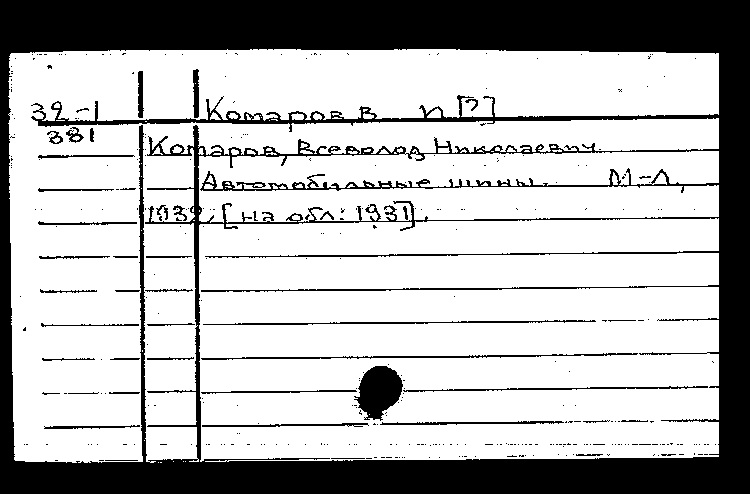 32-1 Комаров, В и [?]
381
Комаров, Всеволод Николаевич
Автомобильные шины. М-Л.,
1932, [на обл: 1931].